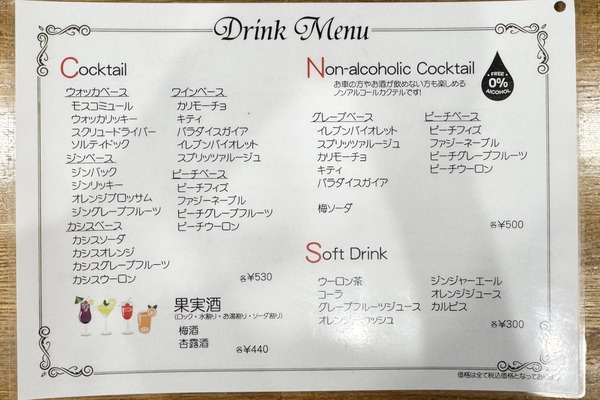 Drink Menu
Cocktail
ウォッカベース
モスコミュール
ウォッカリッキー
スクリュードライバー
ソルティドック
ジンベース
ジンバック
ジンリッキー
オレンジブロッサム
ジングレープフルーツ
カシスベース
カシスソーダ
カシスオレンジ
カシスグレープフルーツ
カシスウーロン
ワインベース
カリモーチョ
キティ
パラダイスガイア
イレブンバイオレット
スプリッツァルージュ
ピーチベース
ピーチフィズ
ファジーネーブル
ピーチグレープフルーツ
ピーチウーロン
各¥530
果実酒
(ロック・水割り・お湯割り・ソーダ割り)
梅酒
杏露酒
各¥440
Non-alcoholic Cocktail
お車の方やお酒が飲めない方も楽しめる
ノンアルコールカクテルです!
FREE
0%
AlCOHOL
グレープベース
イレブンバイオレット
スプリッツァルージュ
カリモーチョ
キティ
パラダイスガイア
梅ソーダ
ピーチベース
ピーチフィズ
ファジーネーブル
ピーチグレープフルーツ
ピーチウーロン
各¥500
Soft Drink
ウーロン茶
コーラ
グレープフルーツジュース
オレンジスカッシュ
ジンジャーエール
オレンジジュース
カルピス
各¥300
価格は全て税込価格となってお